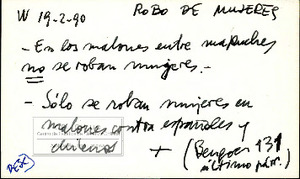 W 19-2-90 ROBO DE MUJERES
- En los malones entre mapuches
no se roban mujeres.-
- Sólo se roban mujeres en
malones contra españoles y
chilenos
+ (Bengoa 131
último párr.)